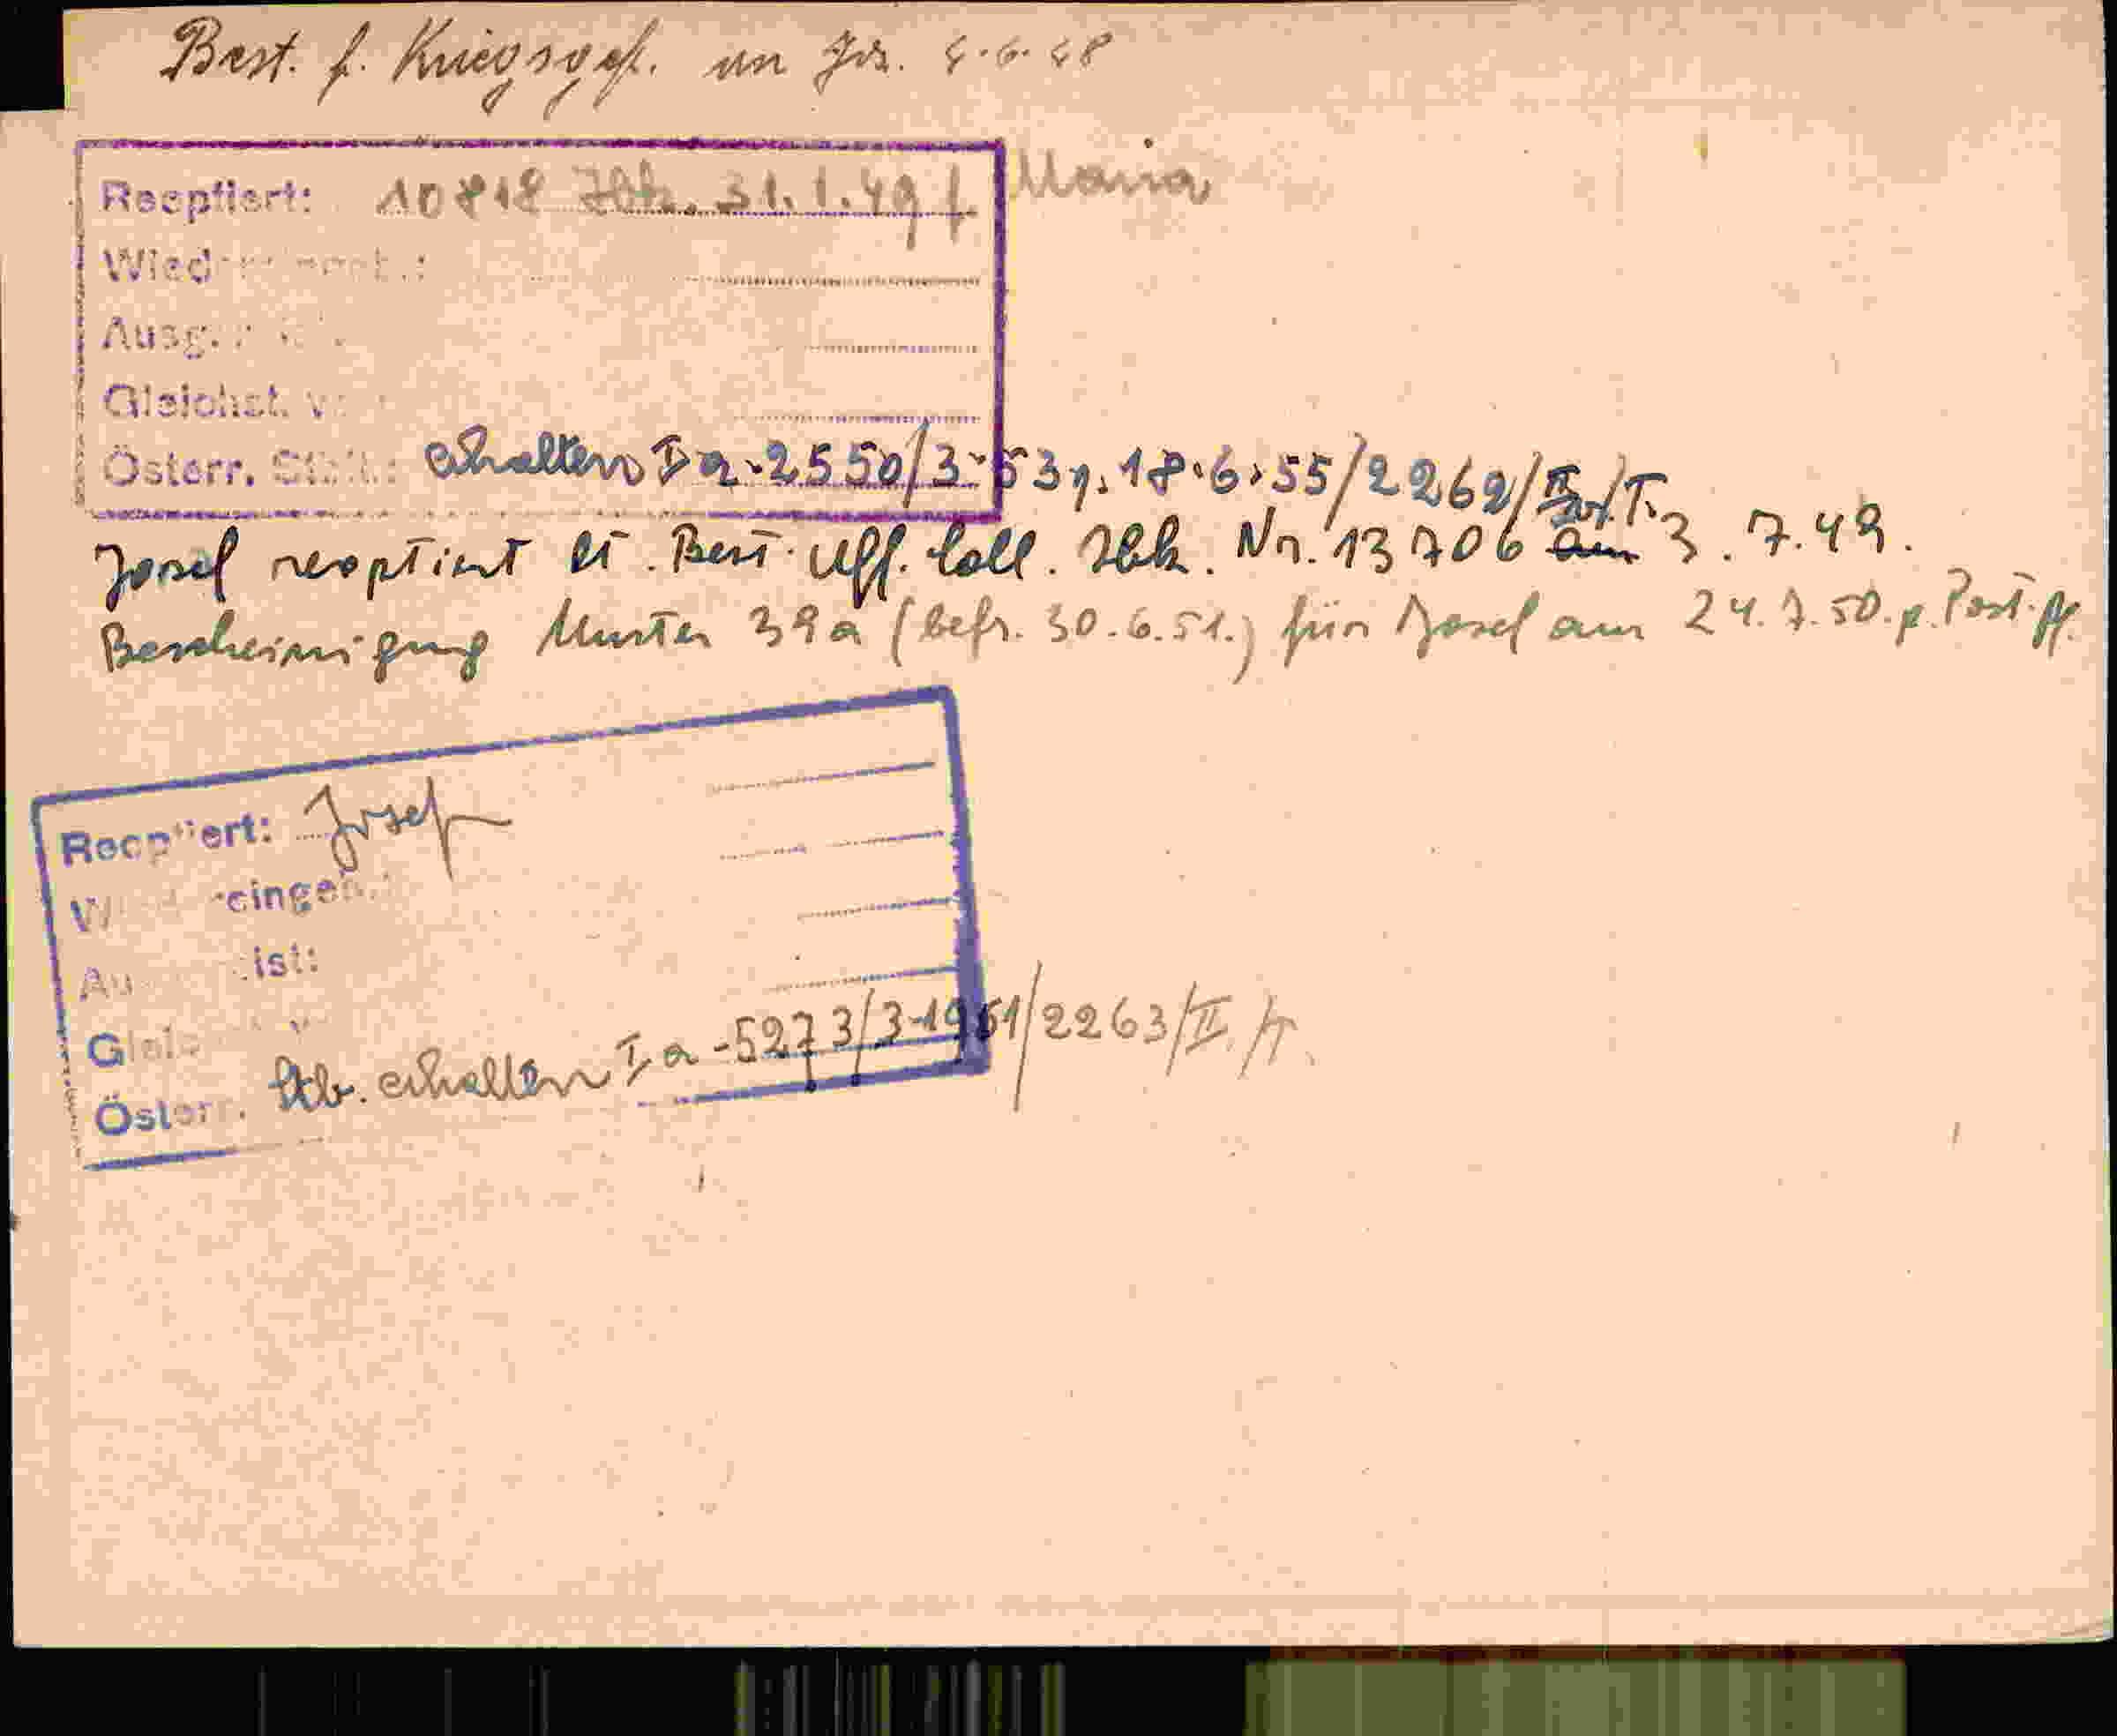 Best. f. Kriegsgef. an Jos. 4.6.48
Reoptiert: 10818 Ibk. 31.1.49 f. Maria
Wied
Ausg.
Gleichst. v
Österr. Stb.: erhalten Ia-2550/3-53 v. 18.6.55/2262/II/T.
Josef reoptiert lt. Best. Uff. Coll. Ibk. Nr. 13706 am 3.7.49.
Bescheinigung Muster 39a (befr. 30.6.51.) für Josef am 24.7.50. p. Post.
Reoptiert: Josef
eingeb.:
ist:
Österr. Stb. erhalten Ia-5273/3-1951/2263/II./T.